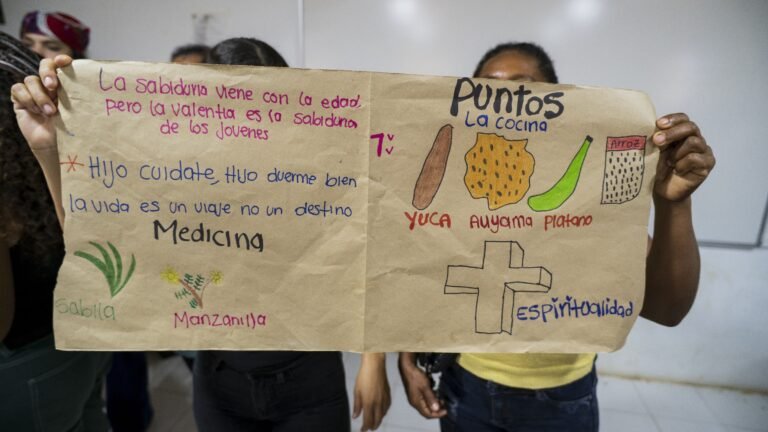 La sabiduria viene con la edad
pero la valentia es la sabiduria
de los jovenes
* Hijo cuidate, Hijo duerme bien
la vida es un viaje no un destino
Medicina
Sabila
Manzanilla
Puntos
La cocina
Arroz
YUCA Auyama Platano
Espiritualidad